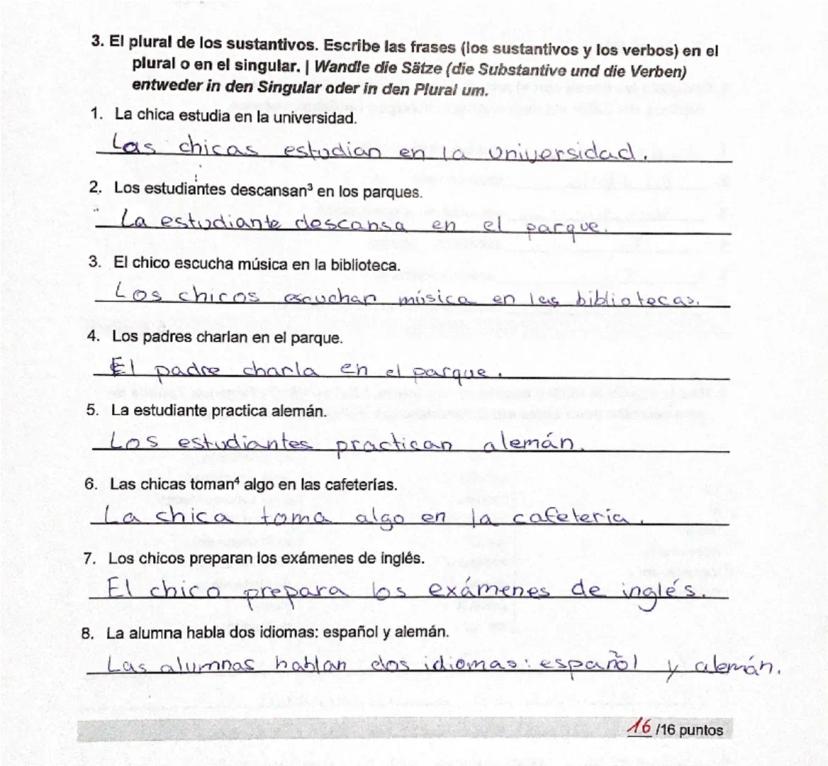 3. El plural de los sustantivos. Escribe las frases (los sustantivos y los verbos) en el
plural o en el singular. | Wandle die Sätze (die Substantive und die Verben)
entweder in den Singular oder in den Plural um.
1. La chica estudia en la universidad.
Las chicas estudian en la universidad.
2. Los estudiantes descansan³ en los parques.
La estudiante descansa en el parque.
3. El chico escucha música en la biblioteca.
Los chicos escuchan música en las bibliotecas.
4. Los padres charlan en el parque.
El padre charla en el parque.
5. La estudiante practica alemán.
Los estudiantes practican alemán.
6. Las chicas toman⁴ algo en las cafeterías.
La chica toma algo en la cafetería.
7. Los chicos preparan los exámenes de inglés.
El chico prepara los exámenes de inglés.
8. La alumna habla dos idiomas: español y alemán.
Las alumnas hablan dos idiomas: español y alemán.
16 /16 puntos